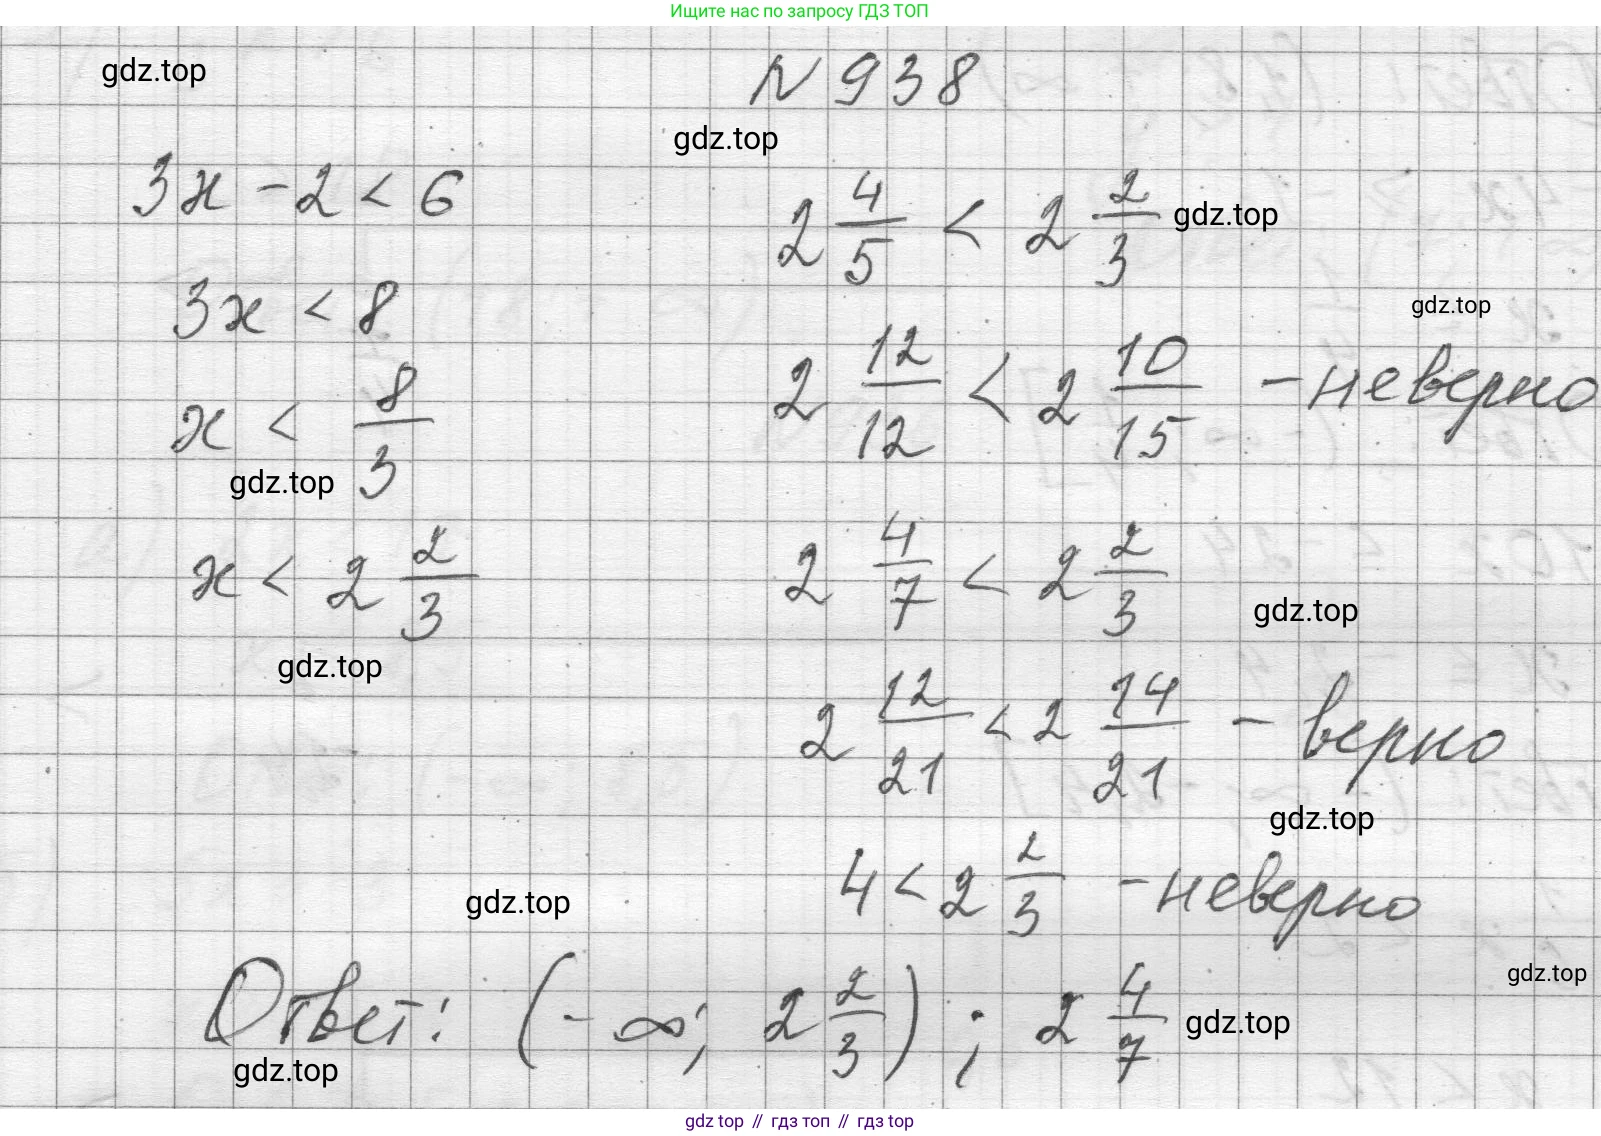 Ищите нас по запросу ГДЗ ТОП
gdz.top
N 938
gdz.top
3x - 2 < 6
2 4/5 < 2 2/3
gdz.top
3x < 8
gdz.top
2 12/12 < 2 10/15 - неверно
x < 8/3
gdz.top
2 4/7 < 2 2/3
x < 2 2/3
gdz.top
gdz.top
2 12/21 < 2 14/21 - верно
gdz.top
4 < 2 2/3 - неверно
gdz.top
gdz.top
Ответ: (-∞; 2 2/3) ; 2 4/7
gdz.top
gdz.top
gdz top // гдз топ // гдз top